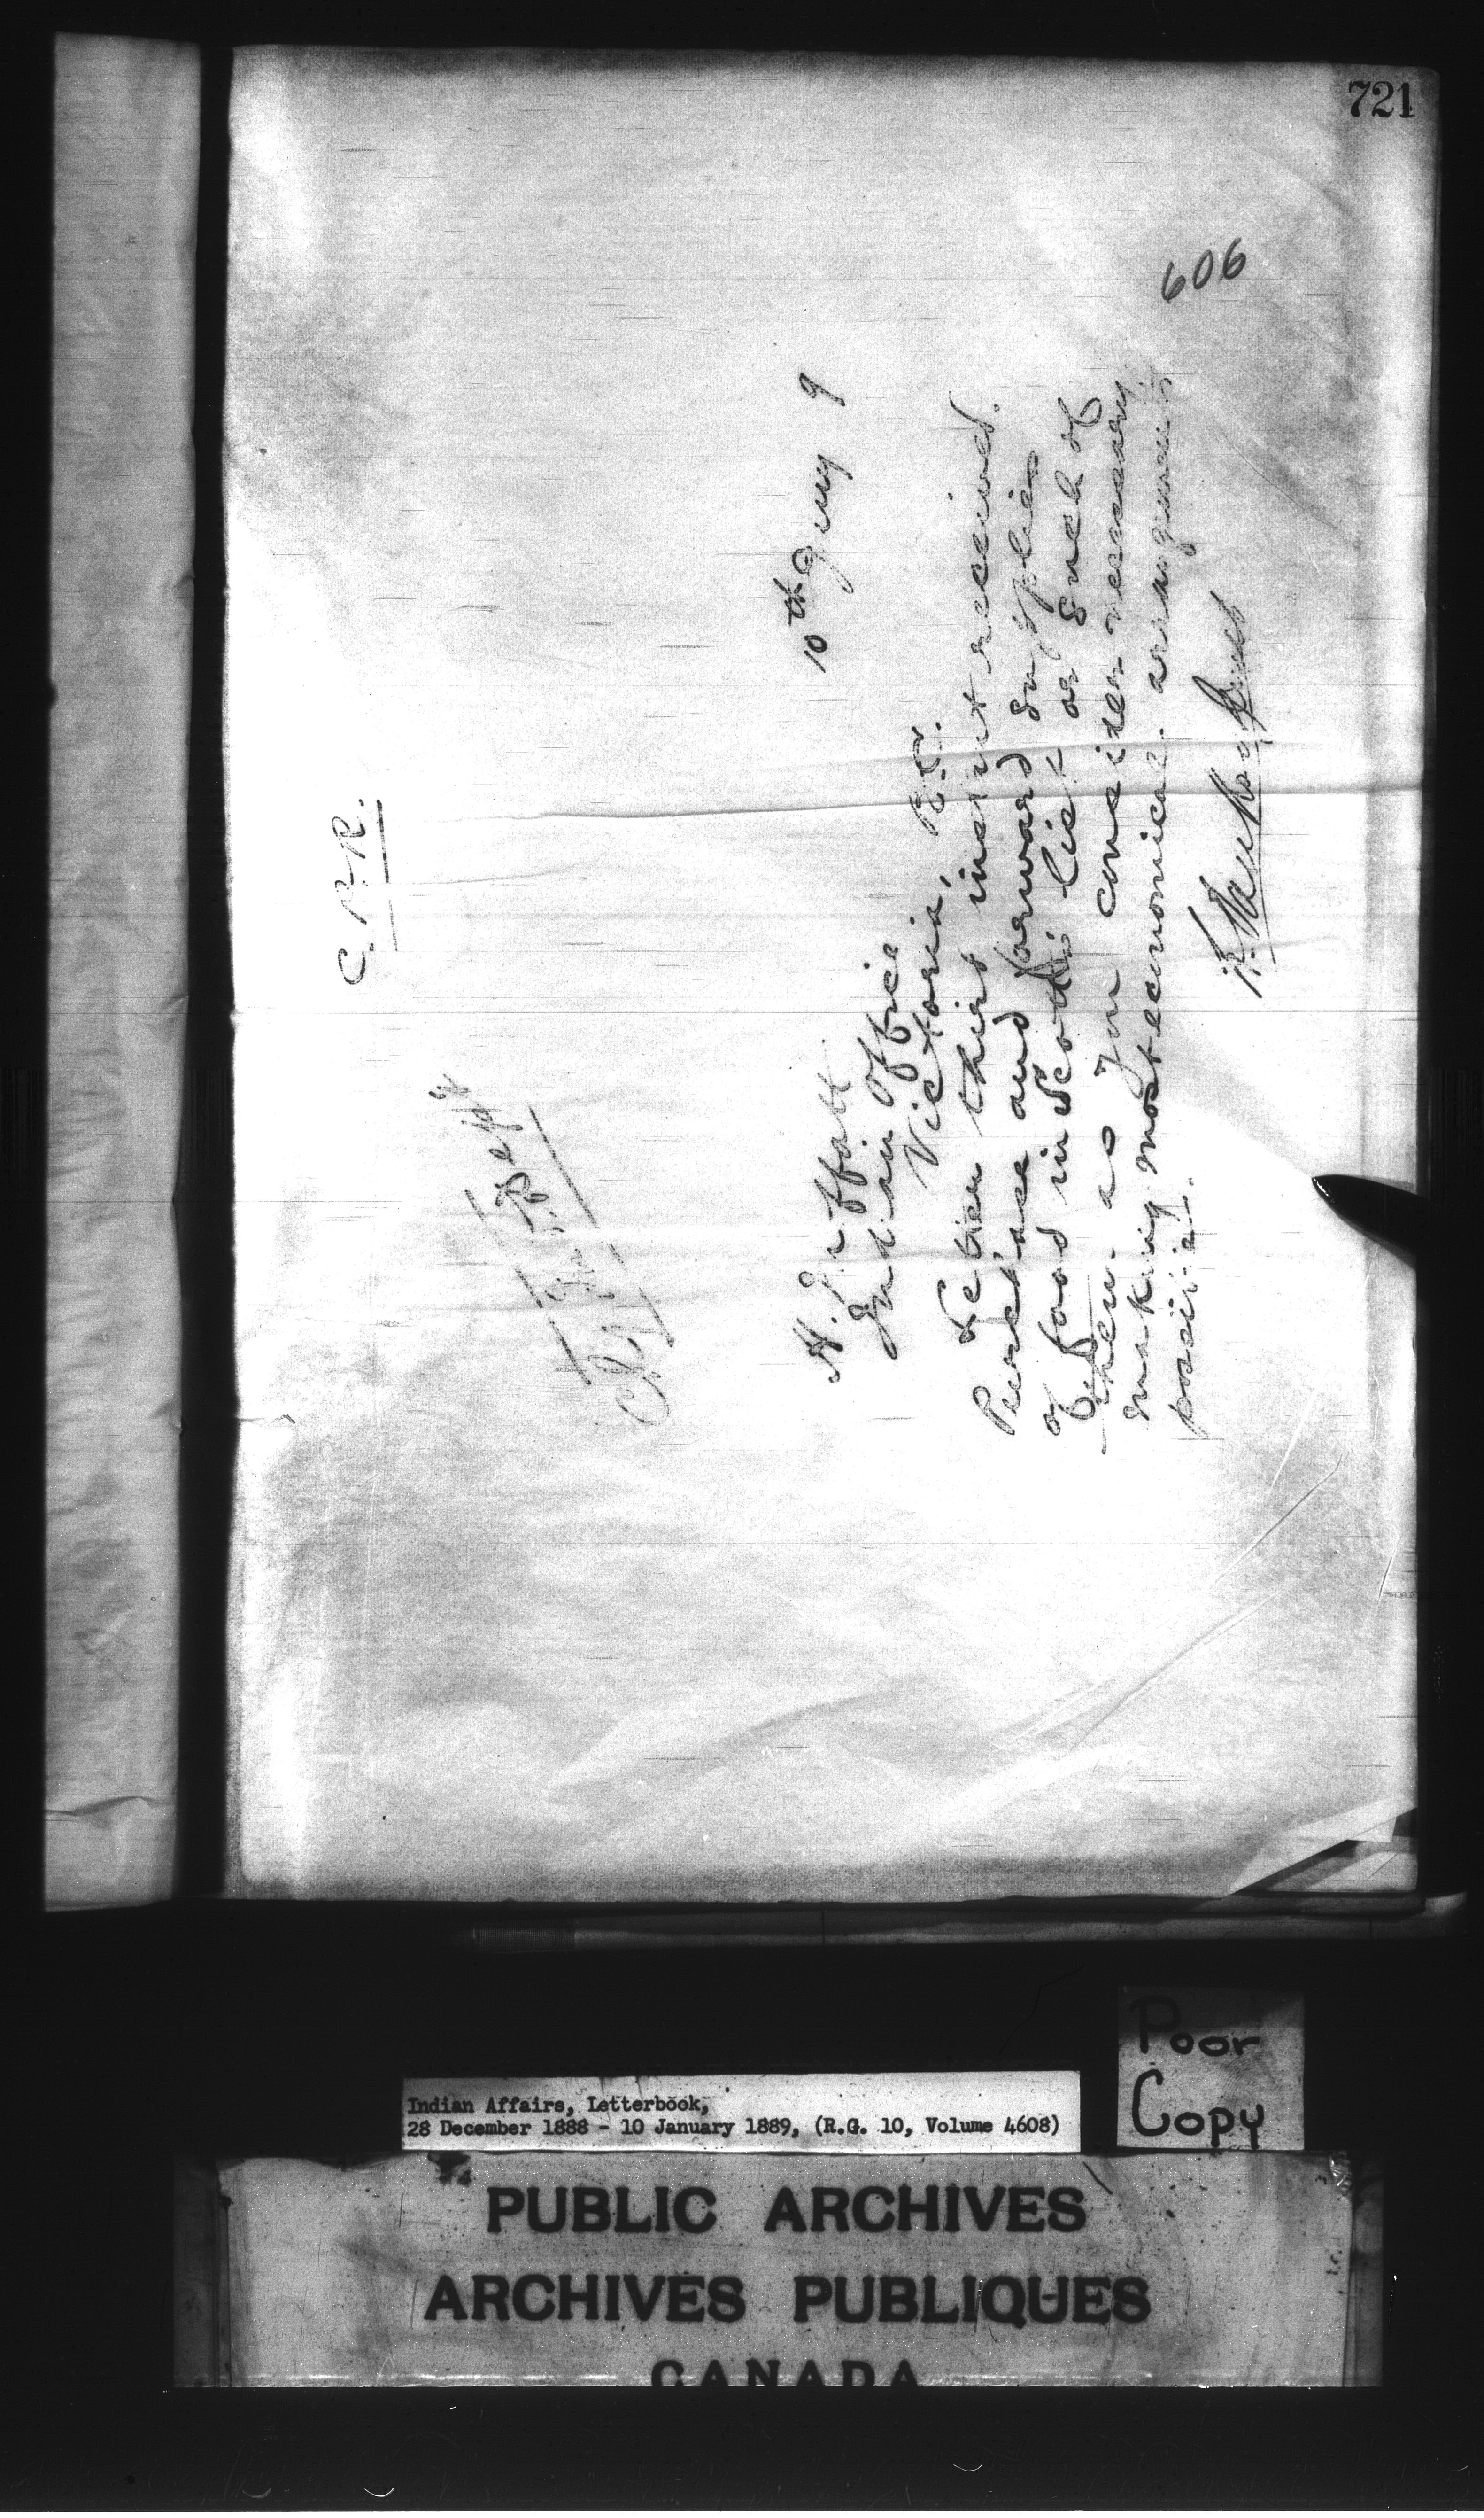 721
606
C.P.R.
10th Jany 9
H. Moffatt
Indian Office
Victoria, B.C.
Letter third instant received.
Purchase and forward supplies
of food in Scotts' list or such of
them as you consider necessary
making most economical arrangements
possible.
Indian Affairs, Letterbook,
28 December 1888 - 10 January 1889, (R.G. 10, Volume 4608)
Poor
Copy
PUBLIC ARCHIVES
ARCHIVES PUBLIQUES
CANADA